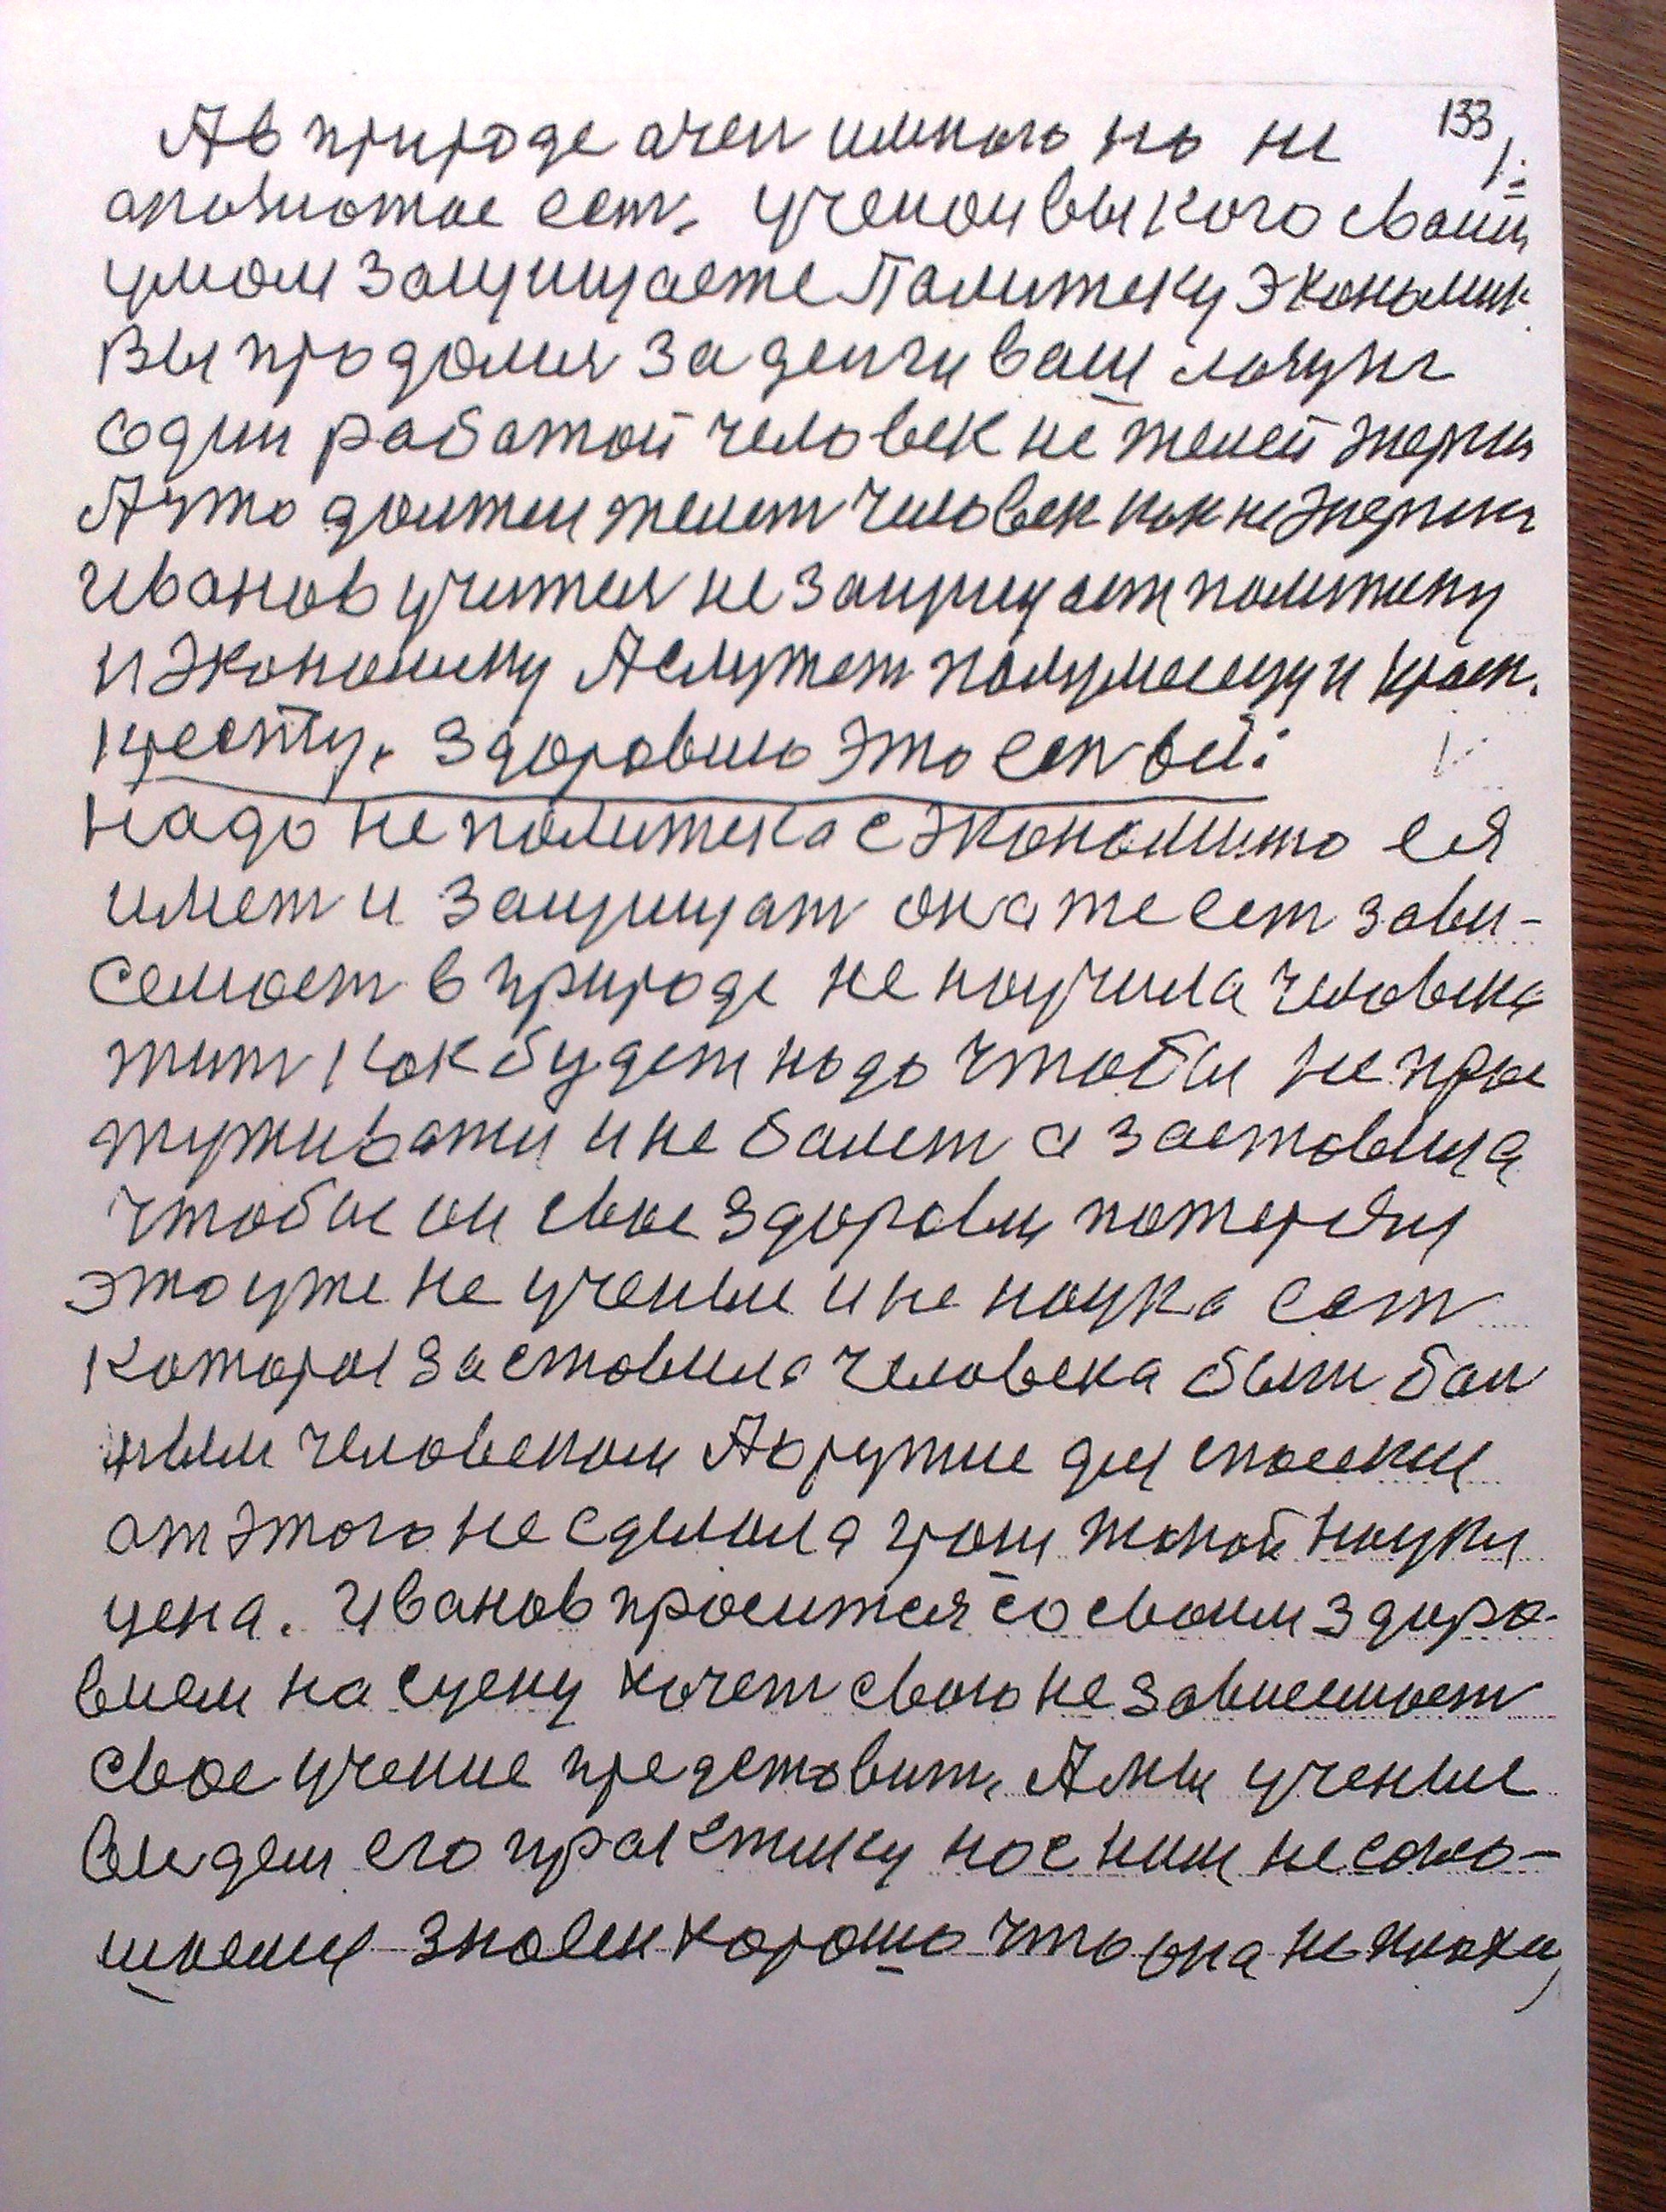 133
Ав природе ачен имного но не
опознотое ест, ученои вы кого своим
умом защищаете Палитеку Экономик
Вы продолися за денги ваш лозунг
один работой человек не жалей энерги
А что должен желет человек как не энерги
Иванов учителя не защищает политику
и экономику А служет полумесецу и крас.
кресту. Здоровию это есть всё:
надо не политека с экономико ея
имет и защищат она же ест зави-
семост в природе не научила человека
жит как будет надо чтобы не прос
туживатии и не болет а заставила
чтобы он свое здоровия потерял
это уже не учение и не наука ест
которая заставила человека быть бол
ным человеком А оружие для спасения
от этого не сделала грош такой науки
цена. Иванов просится со своим здоро-
вием на сцену хочет свою не зависемост
свое учение представит, А мы ученые
видем его практику но с ним не согло-
шаемся знаем хорошо что она не плохая,